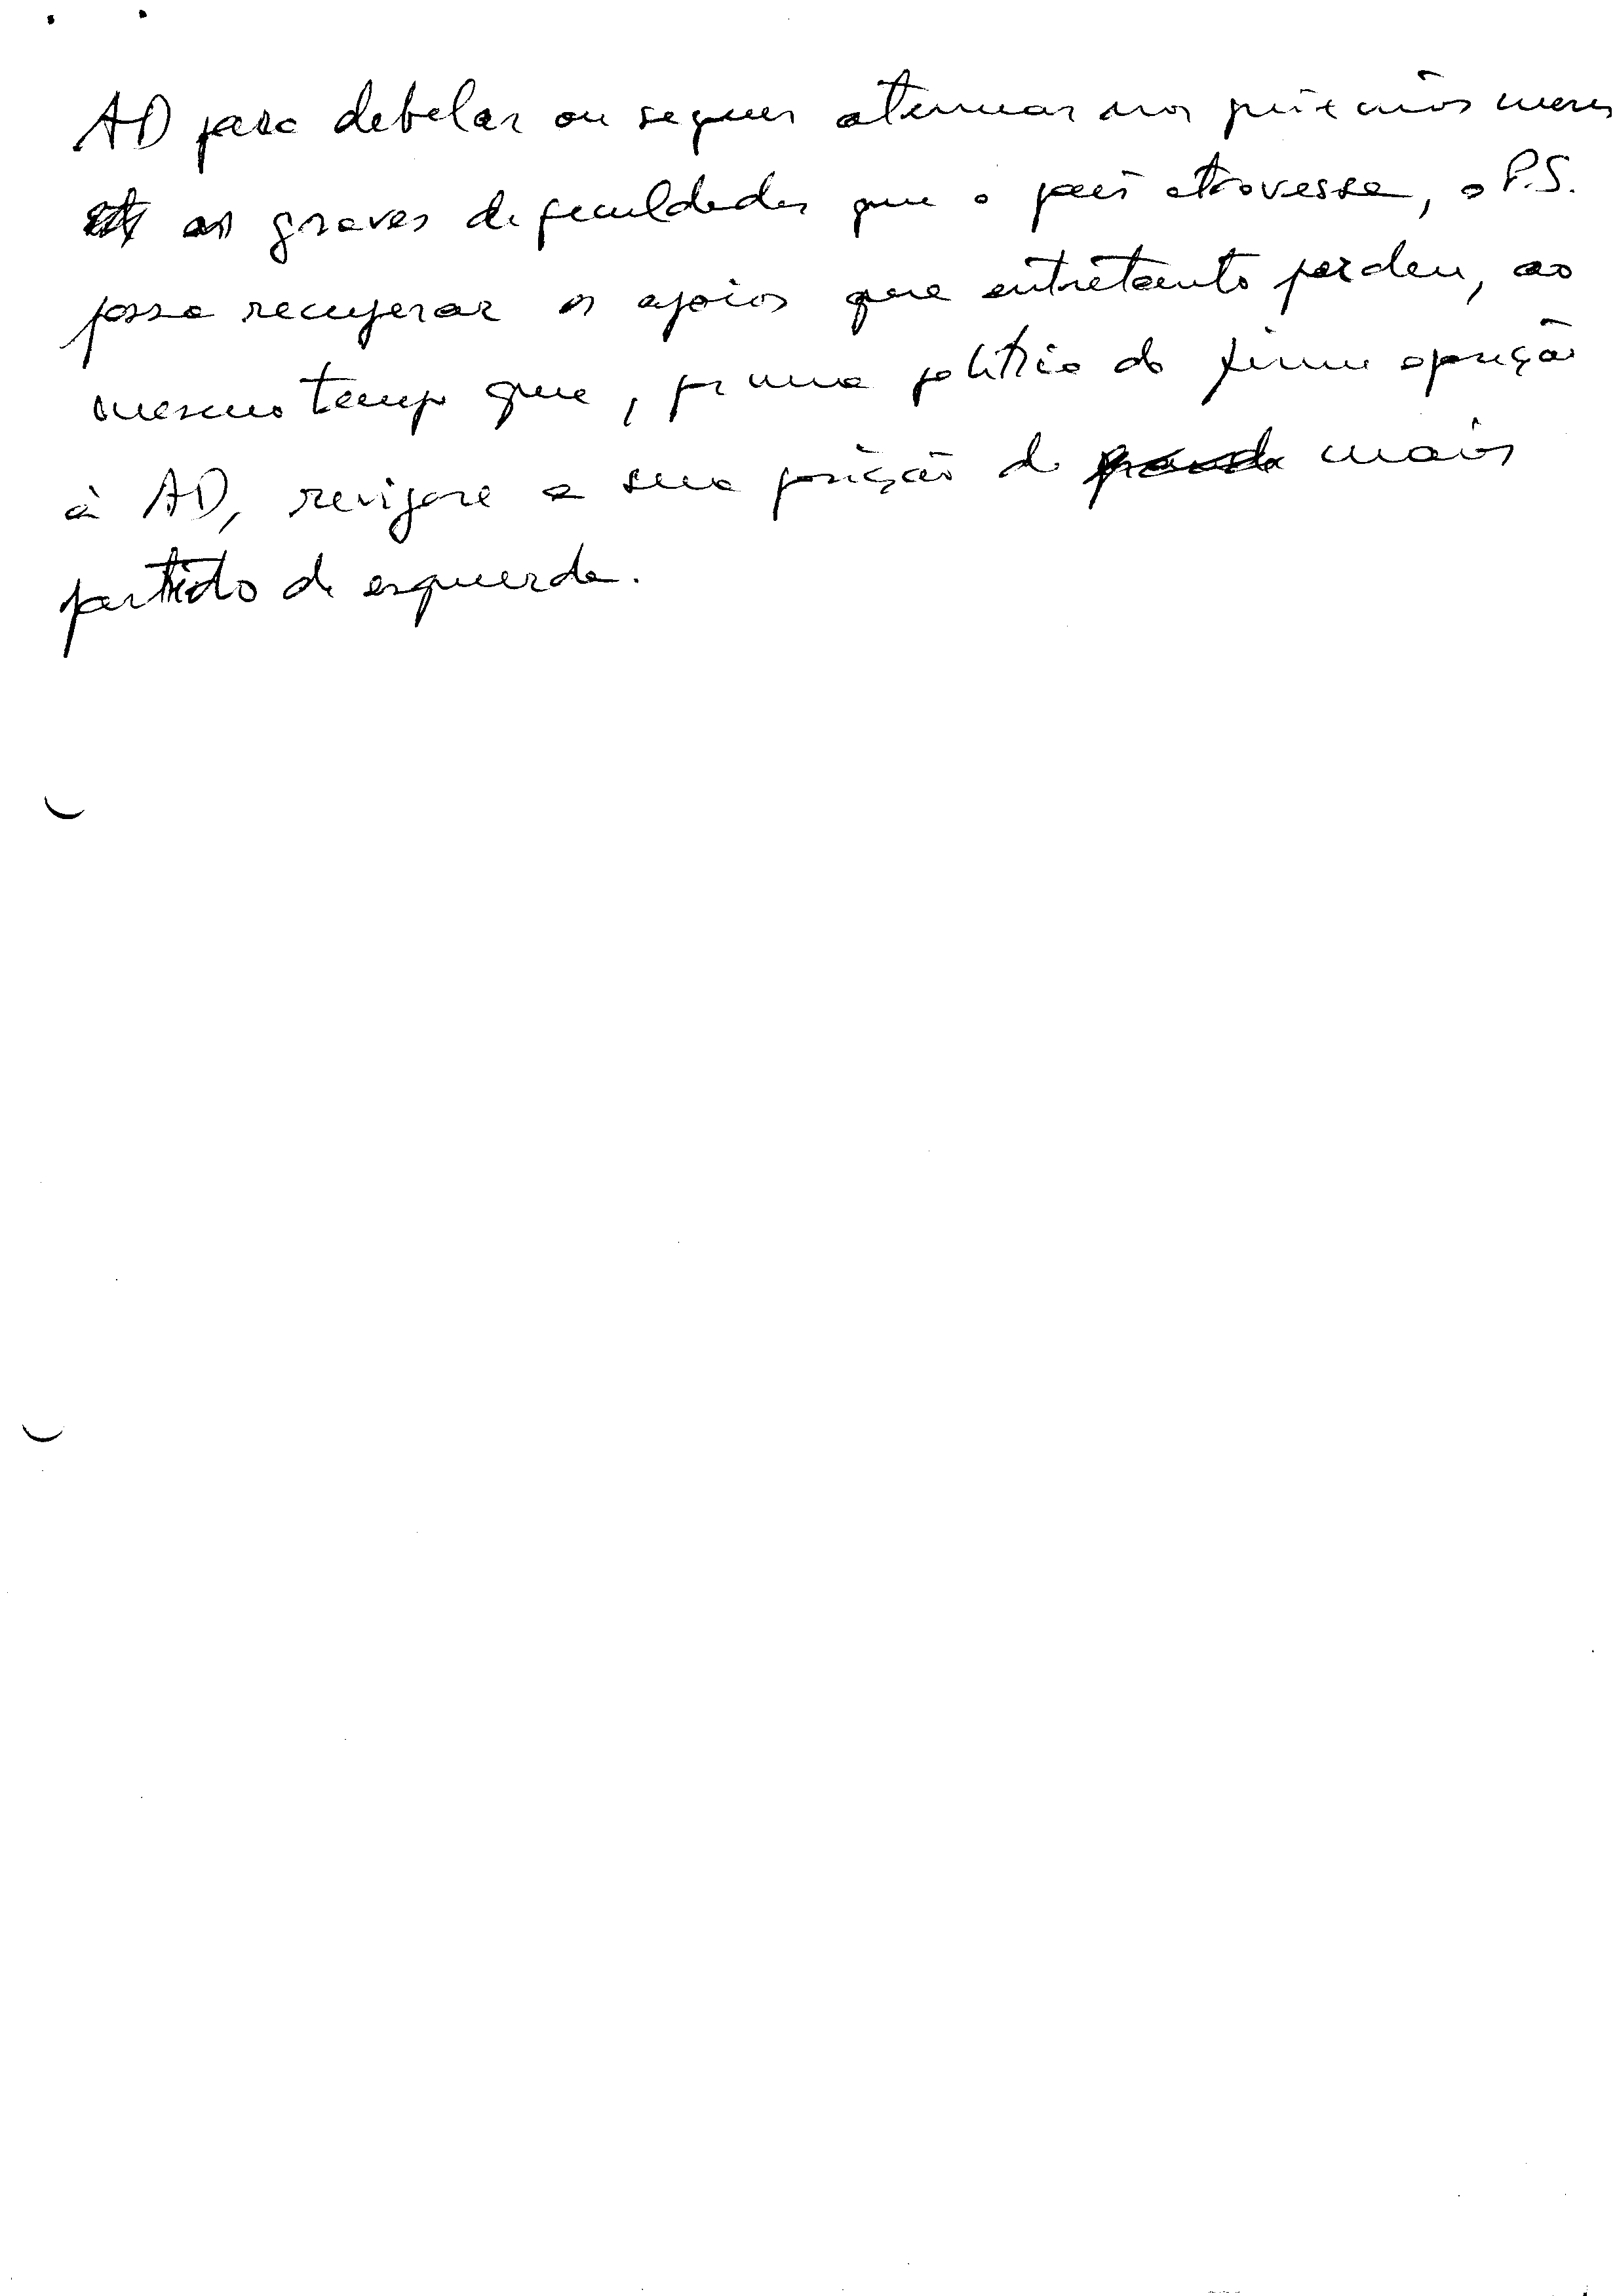 AD para debelar ou sequer atenuar nos próximos meses
as graves dificuldades que o país atravessa, o P.S.
possa recuperar os apoios que entretanto perdeu, ao
mesmo tempo que, por uma política de firme oposição
à AD, revigore a sua posição de grande maior
partido de esquerda.